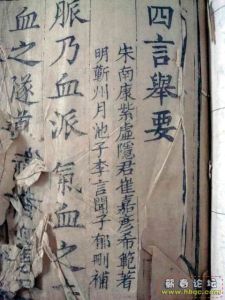 四言舉要
宋南康紫虛隱君崔嘉彥希範著
明蘄州月池子李言聞子郁刪補
脈乃血派氣血之
血之隧道
蘄春在线
www.hbqc.com